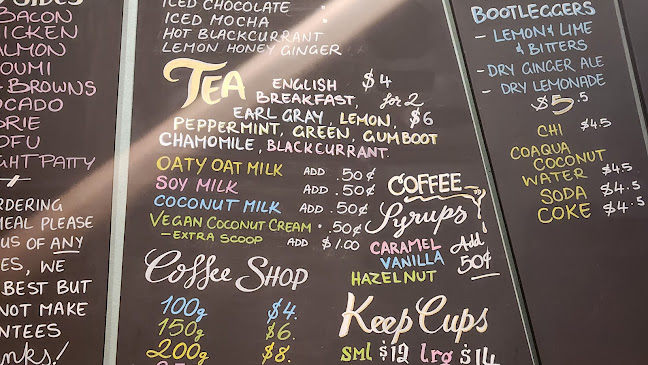 SIDES
BACON
CHICKEN
SALMON
OUMI
- BROWNS
OCADO
ORIE
OFU
GHT PATTY
RDERING
MEAL PLEASE
US OF ANY
ES, WE
BEST BUT
NOT MAKE
NTEES
nks!
ICED CHOCOLATE
ICED MOCHA
HOT BLACKCURRANT
LEMON HONEY GINGER
TEA ENGLISH $4
BREAKFAST, for 2
EARL GRAY, LEMON, $6
PEPPERMINT, GREEN, GUMBOOT
CHAMOMILE, BLACKCURRANT
OATY OAT MILK ADD .50¢
SOY MILK ADD .50¢
COCONUT MILK ADD .50¢
VEGAN COCONUT CREAM .50¢
- EXTRA SCOOP ADD $1.00
COFFEE
Syrups
CARAMEL
VANILLA
HAZELNUT
Add
50¢
Coffee SHOP
100g $4.
150g $6.
200g $8.
Keep Cups
Sml $12 lrg $14
BOOTLEGGERS
- LEMON & LIME
& BITTERS
- DRY GINGER ALE
- DRY LEMONADE
$5.5
CHI $4.5
COAQUA
COCONUT
WATER $4.5
SODA $4.5
COKE $4.5